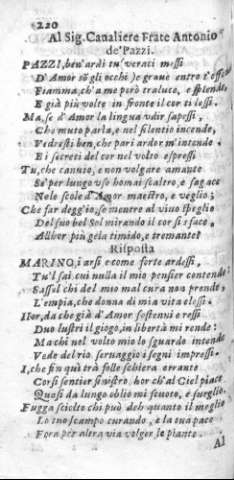 220
Al Sig. Caualiere Frate Antonio
de'Pazzi.
PAZZI, ben'ardi tu; veraci messi
D'Amor sō gli occhi, e graue entro t'offe
Fiamma, ch'a me però traluce, e splende
E già più volte in fronte il cor ti lessi.
Ma, se d'Amor la lingua vdir sapessi,
Che muto parla, e nel silentio incende,
Vedresti ben, che pari ardor m'incende
E i secreti del cor nel volto espressi
Tu, che canuto, e non volgare amante
Se' per lungo vso homai scaltro, e sagace
Nele scole d'Amor maestro, e veglio;
Che far degg'io, se mentre al viuo speglio
Del suo bel Sol mirando il cor si sface
Allhor più gela timido, e tremante?
Risposta
MARINO, i arsi e come forte ardessi,
Tu'l sai cui nulla il mio pensier contende
Sassel chi del mio mal cura non prende
L'empia, che donna di mia vita elessi.
Hor, da che già d'Amor sostenni e ressi
Duo lustri il giogo, in libertà mi rende:
Ma chi nel volto mio lo sguardo intende
Vede del rio seruaggio i segni impressi.
I, che fin quà trà folle schiera errante
Corsi sentier sinestro, hor ch'al Ciel piace
Quasi da lungo oblio mi scuoto, e sueglio.
Fugga sciolto chi può deh quanto il meglio
Lo suo scampo curando, e la sua pace
Fora per altra via volger le piante.
Al